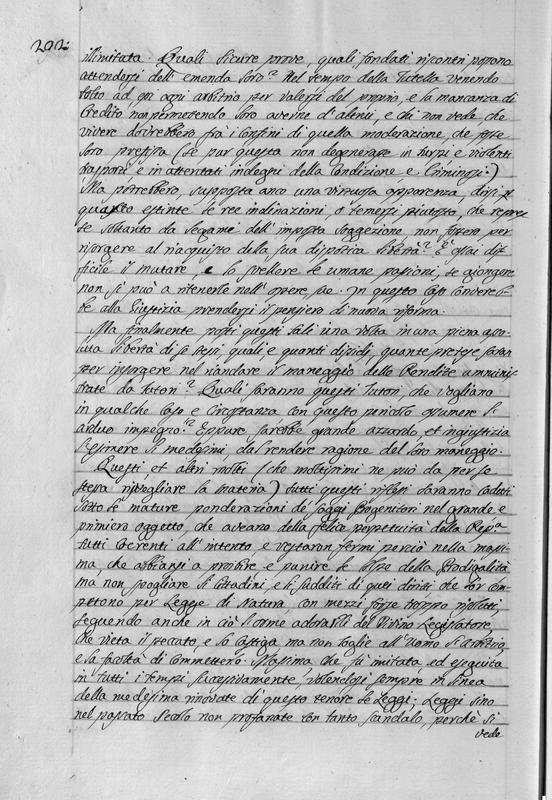 202.
illimitata. Quali sicure prove, quali fondati riscontri possono
attendersi dell' emenda loro? Nel tempo della Tutella venendo
tolto ad essi ogni arbitrio per valersi del proprio, e la mancanza di
Credito non permettendo loro averne d' altrui, e chi non vede che
vivere dovrebbero fra i confini di quella moderazione, che fosse
loro prefissa (se pur questa non degenerasse in turpi e violenti
trasporti e in attentati indegni della Condizione e Criminosi.)
Ma potrebbero, supposta anco una virtuosa apparenza, dirsi p
questo estinte le ree inclinazioni, o temersi piutosto, che represse
soltanto da legame dell' imposta soggezione non fossero per
risorgere al riacquisto della sua dispotica libertà? È assai dif
ficile il mutare, e lo svellere le umane passioni, se giongere
non si può a ritenerle nell' opere sue. In questo caso converreb
be alla Giustizia prendersi il pensiero di nuova riforma.
Ma finalmente posti questi tali una volta in una piena asso
luta libertà di se stessi, quali e quanti dissidj, quante pretese saran
per insorgere nel rivandare il maneggio delle Rendite amminis
trate da tutori? Quali saranno questi Tutori, che vogliano
in qualche caso e Circostanza con questo pericolo assumere sì
arduo impegno? Eppure sarebbe grande azzardo, et ingiustizia
l'esimere li medesimi, dal rendere ragione del loro maneggio.
Questi et altri molti (che moltissimi ne può da per se
stessa risvegliare la materia) tutti questi riflessi saranno caduti
sotto le mature ponderazioni de saggi Progenitori nel grande e
primiero oggetto, che aveano della felice perpetuità della Repa
tutti coerenti all' intento e restaron fermi perciò nella massi
ma, che abbiansi a proibire e punire le colpe della Prodigalità
ma non spogliare li Cittadini, e li sudditi di quei diritti che lor com
petono per Legge di Natura, con mezzi forse troppo risoluti,
seguendo anche in ciò l'orme adorabili del Divino Legislatore
che vieta il peccato, e lo castiga ma non toglie all' Uomo l'arbitrio
e la facoltà di commetterlo. Massima che fu imitata ed eseguita
in tutti i tempi successivamente, volendosi sempre in linea
della medesima rinovate di questo tenore le Leggi; Leggi sino
nel passato secolo non profanate con tanto scandalo, perchè si
vede